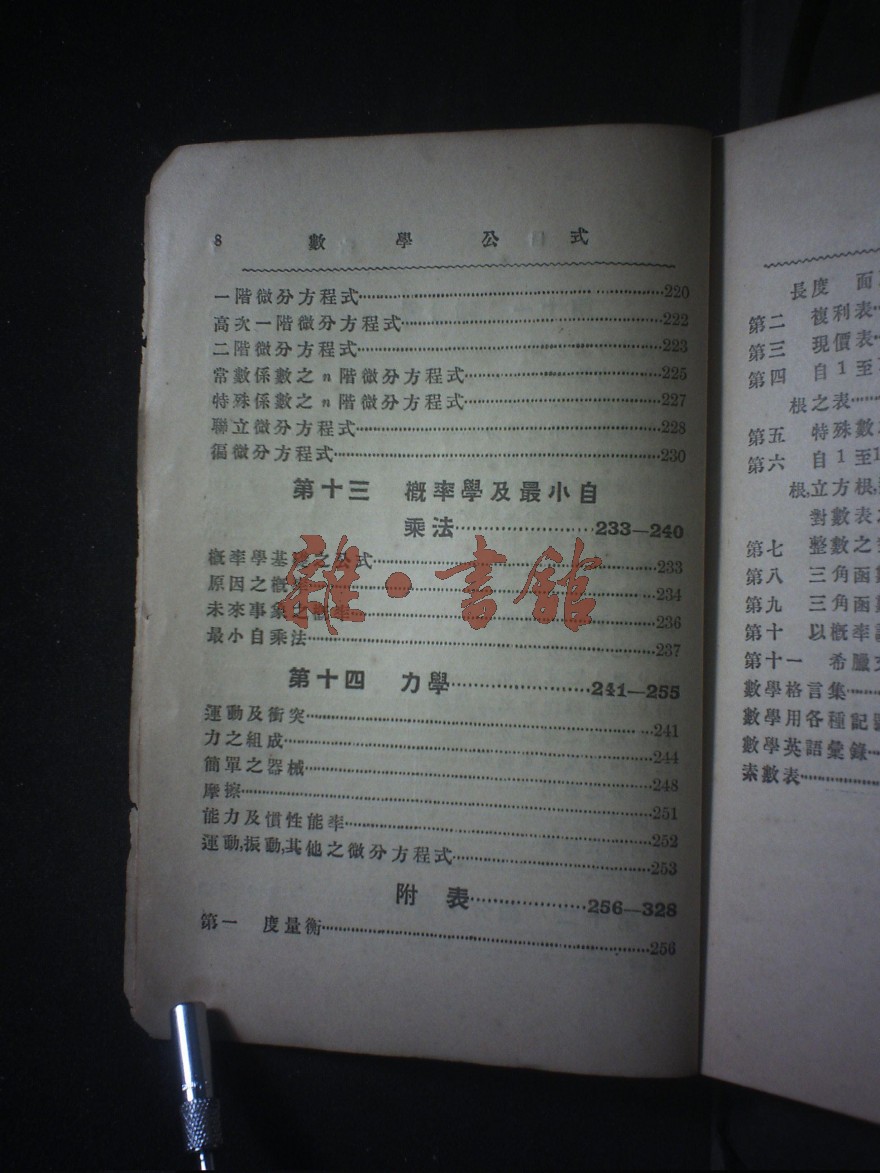 8 數學公式
一階微分方程式……220
高次一階微分方程式……222
二階微分方程式……223
常數係數之 n 階微分方程式……225
特殊係數之 n 階微分方程式……227
聯立微分方程式……228
徧微分方程式……230
第十三 概率學及最小自
乘法……233—240
概率學基礎之公式……233
原因之概率……234
未來事象之概率……236
最小自乘法……237
第十四 力學……241—255
運動及衝突……241
力之組成……244
簡單之器械……248
摩擦……251
能力及慣性能率……252
運動,振動,其他之微分方程式……253
附表……256—328
第一 度量衡……256
雜·書館
長度 面
第二 複利表…
第三 現價表…
第四 自1至
根之表……
第五 特殊數
第六 自1至1
根,立方根,
對數表
第七 整數之
第八 三角函
第九 三角函數
第十 以概率
第十一 希臘
數學格言集……
數學用各種記
數學英語彙錄…
素數表……